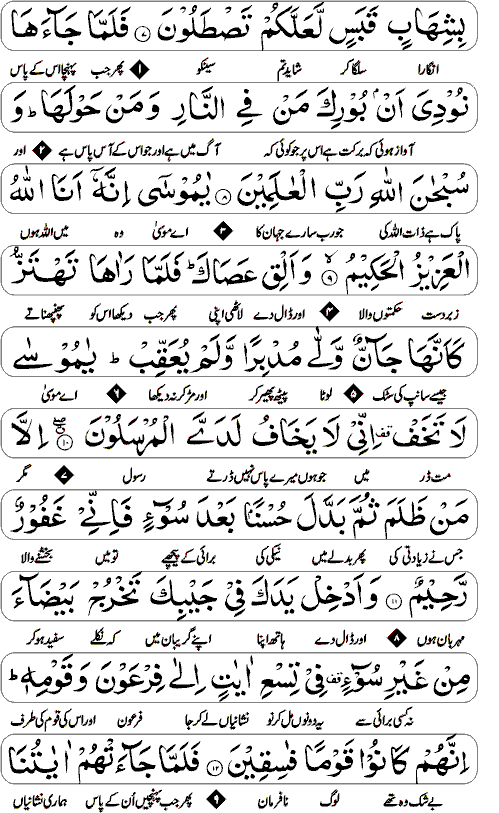 بِشِهَابٍ قَبَسٍ لَّعَلَّكُمْ تَصْطَلُوْنَ ﴿۷﴾ فَلَمَّا جَآءَهَا
انگارا سلگا کر شاید تم سینکو ۱ پھر جب پہنچا اس کے پاس
نُوْدِیَ اَنْۢ بُوْرِكَ مَنْ فِی النَّارِ وَ مَنْ حَوْلَهَا ؕ وَ
آواز ہوئی کہ برکت ہے اس پر جو کوئی کہ آگ میں ہے اور جو اس کے آس پاس ہے ۲ اور
سُبْحٰنَ اللّٰهِ رَبِّ الْعٰلَمِیْنَ ﴿۸﴾ یٰمُوْسٰۤی اِنَّهٗۤ اَنَا اللّٰهُ
پاک ہے ذات اللہ کی جو رب سارے جہان کا ۳ اے موسیٰ وہ میں اللہ ہوں
الْعَزِیْزُ الْحَكِیْمُ ﴿۹﴾ وَ اَلْقِ عَصَاكَ ؕ فَلَمَّا رَاٰهَا تَهْتَزُّ
زبردست حکمتوں والا ۴ اور ڈال دے لاٹھی اپنی پھر جب دیکھا اس کو پھنپھناتے
كَاَنَّهَا جَآنٌّ وَّلّٰی مُدْبِرًا وَّلَمْ یُعَقِّبْ ؕ یٰمُوْسٰی
جیسے سانپ کی سٹک ۵ لوٹا پیٹھ پھیر کر اور مڑ کر نہ دیکھا ۶ اے موسیٰ
لَا تَخَفْ ۫ اِنِّیْ لَا یَخَافُ لَدَیَّ الْمُرْسَلُوْنَ ﴿۱۰﴾ اِلَّا
مت ڈر میں جو ہوں میرے پاس نہیں ڈرتے رسول ۷ مگر
مَنْ ظَلَمَ ثُمَّ بَدَّلَ حُسْنًۢا بَعْدَ سُوْٓءٍ فَاِنِّیْ غَفُوْرٌ
جس نے زیادتی کی پھر بدلے میں نیکی کی برائی کے پیچھے تو میں بخشنے والا
رَّحِیْمٌ ﴿۱۱﴾ وَ اَدْخِلْ یَدَكَ فِیْ جَیْبِكَ تَخْرُجْ بَیْضَآءَ
مہربان ہوں ۸ اور ڈال دے ہاتھ اپنا اپنے گریبان میں کہ نکلے سفید ہو کر
مِنْ غَیْرِ سُوْٓءٍ ۫ فِیْ تِسْعِ اٰیٰتٍ اِلٰی فِرْعَوْنَ وَ قَوْمِهٖ ؕ
نہ کسی برائی سے یہ دونوں مل کر نو نشانیاں لے کر جا فرعون اور اس کی قوم کی طرف
اِنَّهُمْ كَانُوْا قَوْمًا فٰسِقِیْنَ ﴿۱۲﴾ فَلَمَّا جَآءَتْهُمْ اٰیٰتُنَا
بے شک وہ تھے لوگ نافرمان ۹ پھر جب پہنچیں اُن کے پاس ہماری نشانیاں